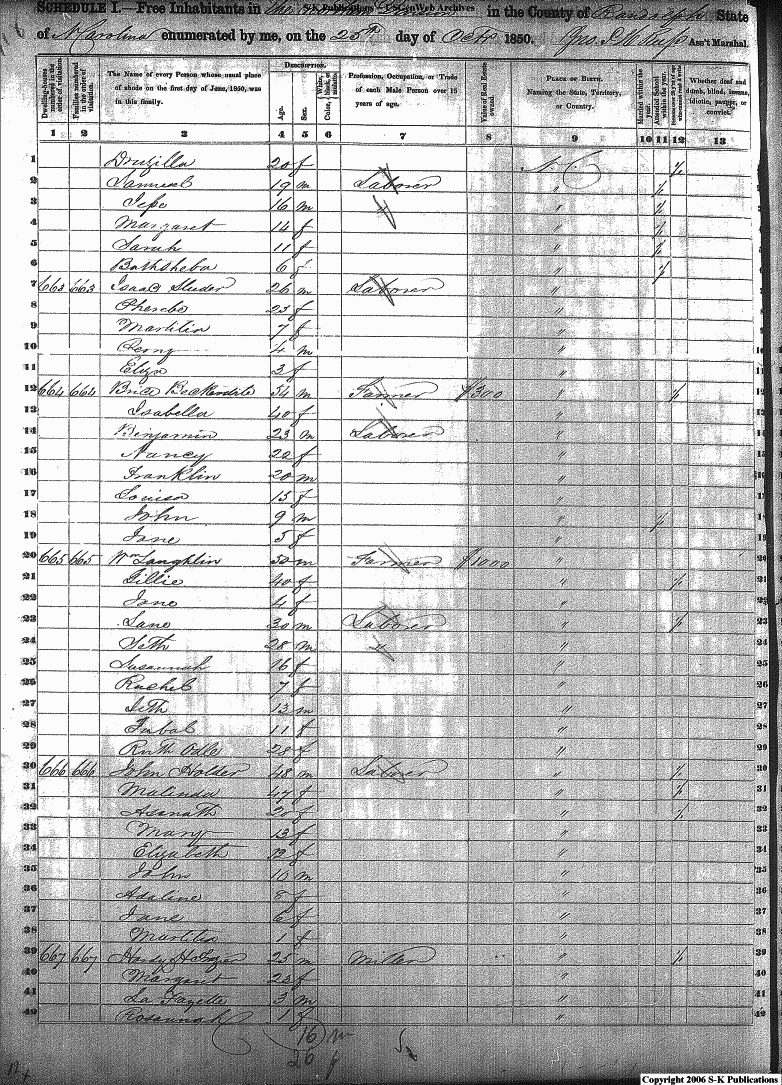 SCHEDULE I.—Free Inhabitants in the Division in the County of Randolph State
S-K Publications - USGenWeb Archives
of N Carolina enumerated by me, on the 25th day of Octr 1850. Ass't Marshal.
Dwelling-houses numbered in the order of visitation. Families numbered in the order of visitation. The Name of every Person whose usual place of abode on the first day of June, 1850, was in this family. DESCRIPTION. Age. Sex. Color, White, black, or mulatto. Profession, Occupation, or Trade of each Male Person over 15 years of age. Value of Real Estate owned. PLACE OF BIRTH. Naming the State, Territory, or Country. Married within the year. Attended School within the year. Persons over 20 y'rs of age who cannot read & write. Whether deaf and dumb, blind, insane, idiotic, pauper, or convict.
1 2 3 4 5 6 7 8 9 10 11 12 13
1 Druzilla 20 f N. C / 1
2 Samuel 19 m Laborer " / 2
3 Jepe 16 m " " / 3
4 Margaret 14 f " / 4
5 Sarah 11 f " / 5
6 Bathsheba 6 f " / 6
7 663 663 Isaac Sluder 26 m Laborer " 7
8 Pherebe 25 f " 8
9 Martitia 7 f " 9
10 Perny 4 m " 10
11 Eliza 3 f " 11
12 664 664 Brice Beckerdite 54 m Farmer $300 " / 12
13 Isabella 40 f " 13
14 Benjamin 23 m Laborer " 14
15 Nancy 22 f " 15
16 Franklin 20 m " 16
17 Louisa 15 f " 17
18 John 9 m " / 18
19 Jane 5 f " 19
20 665 665 Wm Laughlin 50 m Farmer $1000 " 20
21 Gillie 40 f " / 21
22 Jane 4 f " 22
23 Lane 30 m Laborer " / 23
24 Seth 28 m " " 24
25 Susannah 16 f " 25
26 Rachel 7 f " 26
27 Seth 13 m " 27
28 Jubal 11 f " 28
29 Ruth Odle 28 f " 29
30 666 666 John Holder 48 m Laborer " / 30
31 Malinda 47 f " / 31
32 Asenath 20 f " / 32
33 Mary 13 f " 33
34 Elizabeth 12 f " 34
35 John 10 m " 35
36 Adaline 8 f " 36
37 Jane 6 f " 37
38 Martitia 1 f " 38
39 667 667 Hardy 25 m Miller " / 39
40 Margaret 23 f " 40
41 La Fayette 3 m " 41
42 Rosannah 1 f " 42
16 m
26 f
Copyright 2006 S-K Publications